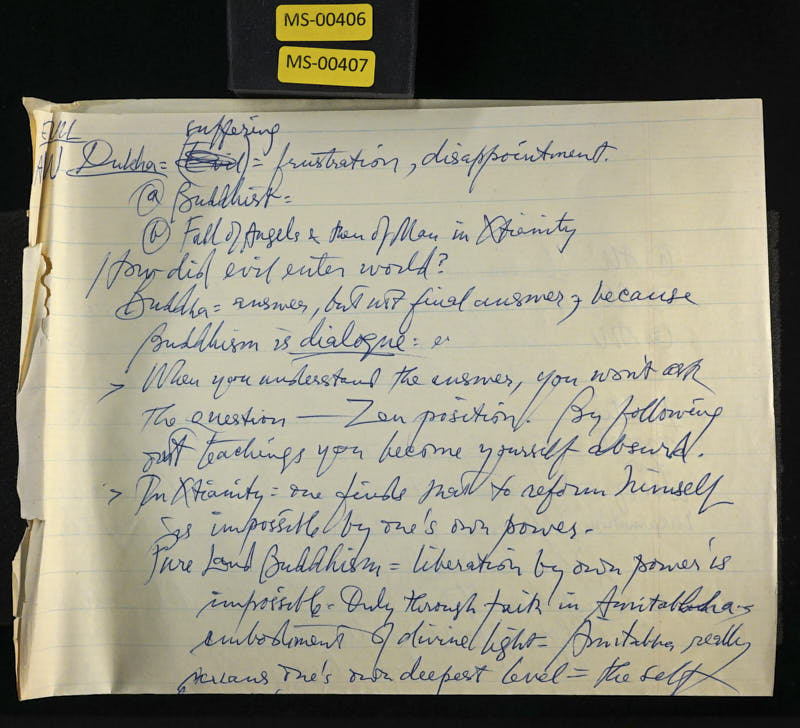 MS-00406
MS-00407
EVIL
suffering
AW Dukha = = frustration, disappointment.
(a) Buddhist =
(b) Fall of Angels & then of Man in Xtianity
How did evil enter world?
Buddha = answer, but not final answer, because
Buddhism is dialogue =
> When you understand the answer, you won't ask
the question — Zen position. By following
teachings you become yourself absurd.
> In Xtianity = one finds that to reform himself
is impossible by one's own power.
Pure Land Buddhism = liberation by own power is
impossible - Only through faith in Amitabha =
embodiment of divine light = Amitabha really
means one's own deepest level = the self